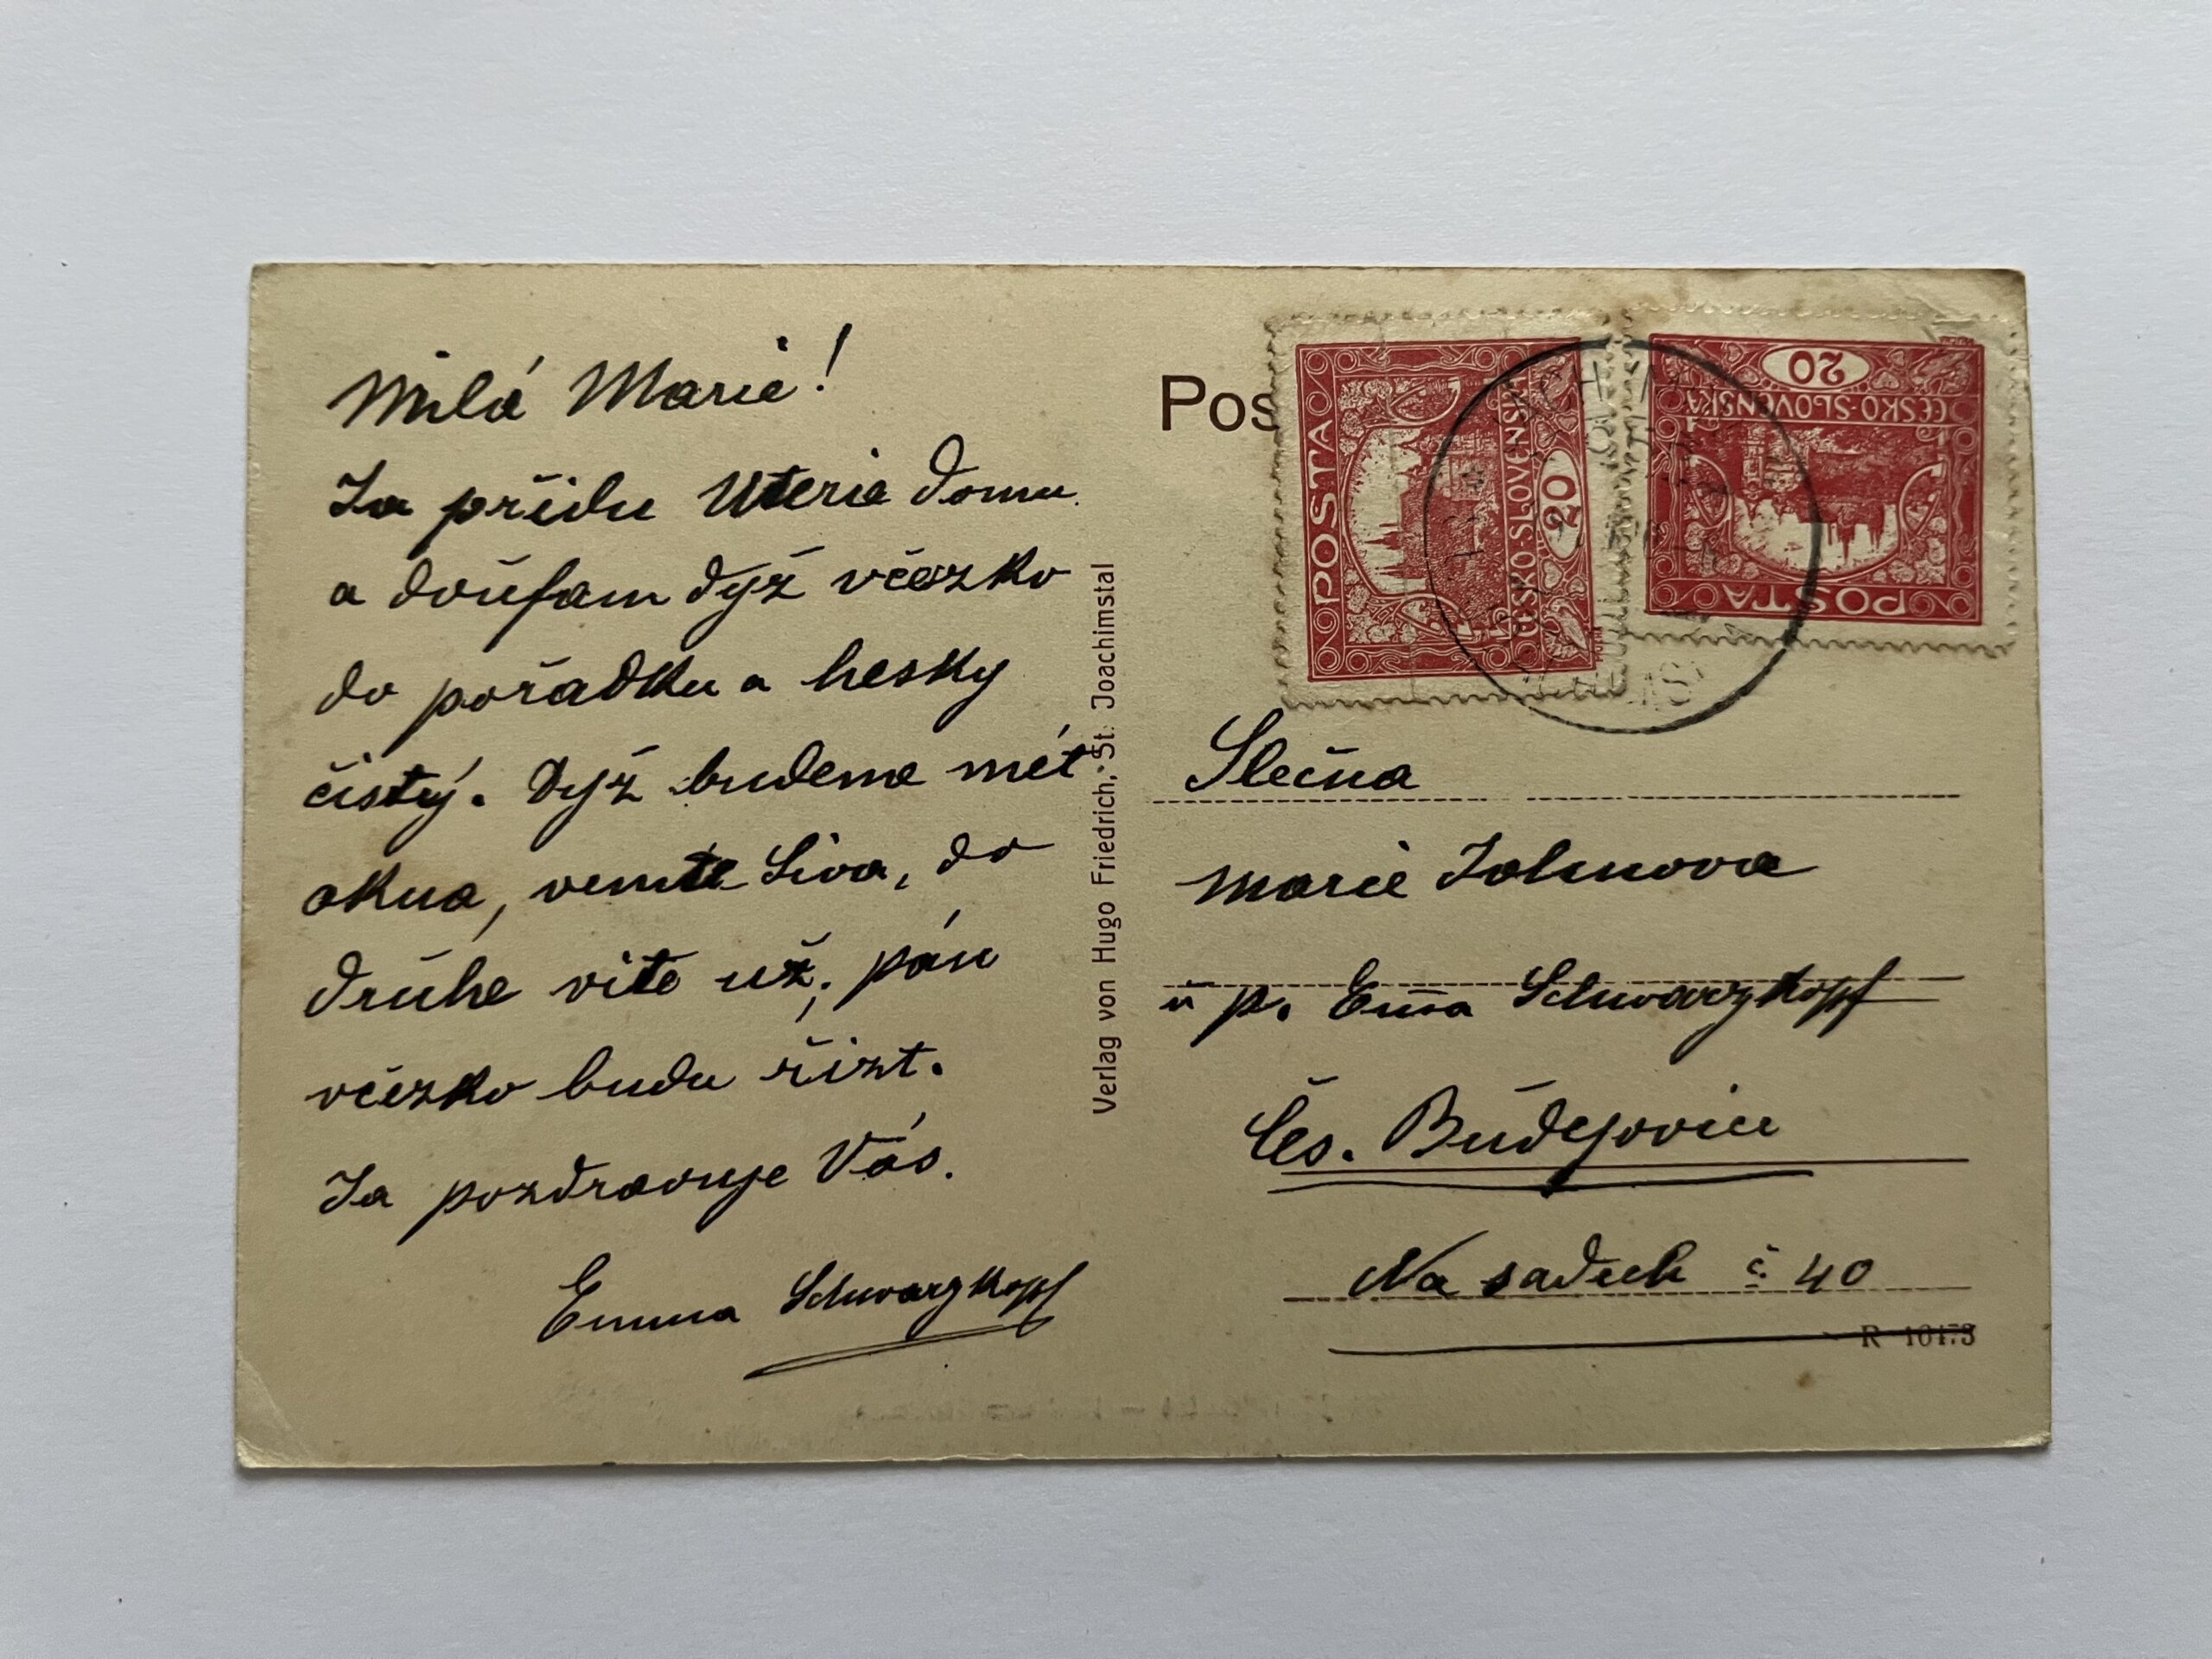 Milá Marie!
Ja přidu Uterie domu
a doufam dyž včezko
do pořadku a hesky
čistý. Dyž budeme mét
okna, vemte Siva, do
druhe vite už, pán
včezko budu řizt.
Ja pozdravuje Vás.
Emma Schwarzkopf
Verlag von Hugo Friedrich, St. Joachimstal
Pos
POSTA
ČESKO-SLOVENSKÁ
20
POSTA
ČESKO-SLOVENSKÁ
20
Slečna
Marie
u p. Ema Schwarzkopf
Čes. Budějovice
Na sadech č. 40
R 10473